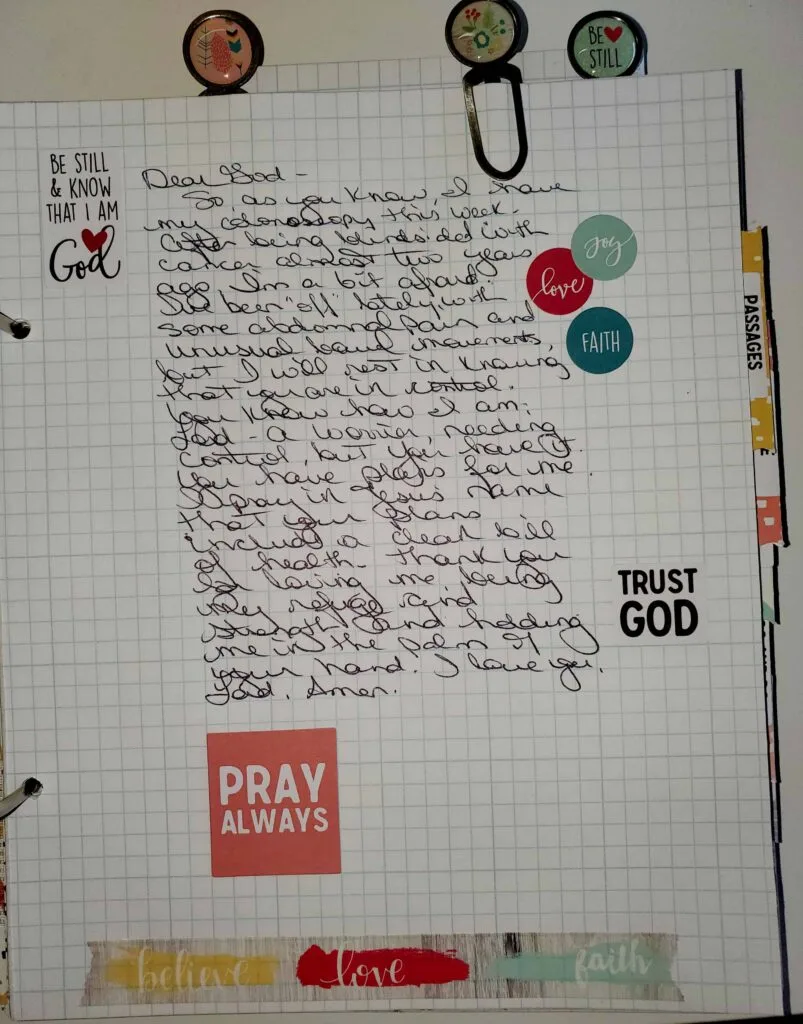 BE STILL
BE STILL
& KNOW
THAT I AM
God
Dear God -
So, as you know, I have
my colonoscopy this week.
After being blindsided with
cancer almost two years
ago I'm a bit afraid.
I've been "off" lately with
some abdominal pain and
unusual bowel movements,
but I will rest in knowing
that you are in control.
You know how I am,
Lord - a worrier, needing
control, but you have it.
You have plans for me.
I pray in Jesus name
that your plans
include a clean bill
of health. Thank you
for loving me being
my refuge and
strength and holding
me in the palm of
your hand. I love you,
Lord. Amen.
joy
love
FAITH
PASSAGES
TRUST
GOD
PRAY
ALWAYS
believe love faith